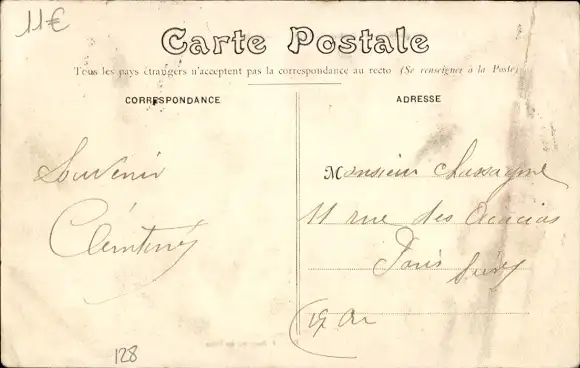 11€
Carte Postale
Tous les pays étrangers n'acceptent pas la correspondance au recto (Se renseigner à la Poste)
CORRESPONDANCE
ADRESSE
Souvenir
Clémtine
Monsieur Chassagne
11 rue des Acacias
Paris
(17 Ar
128